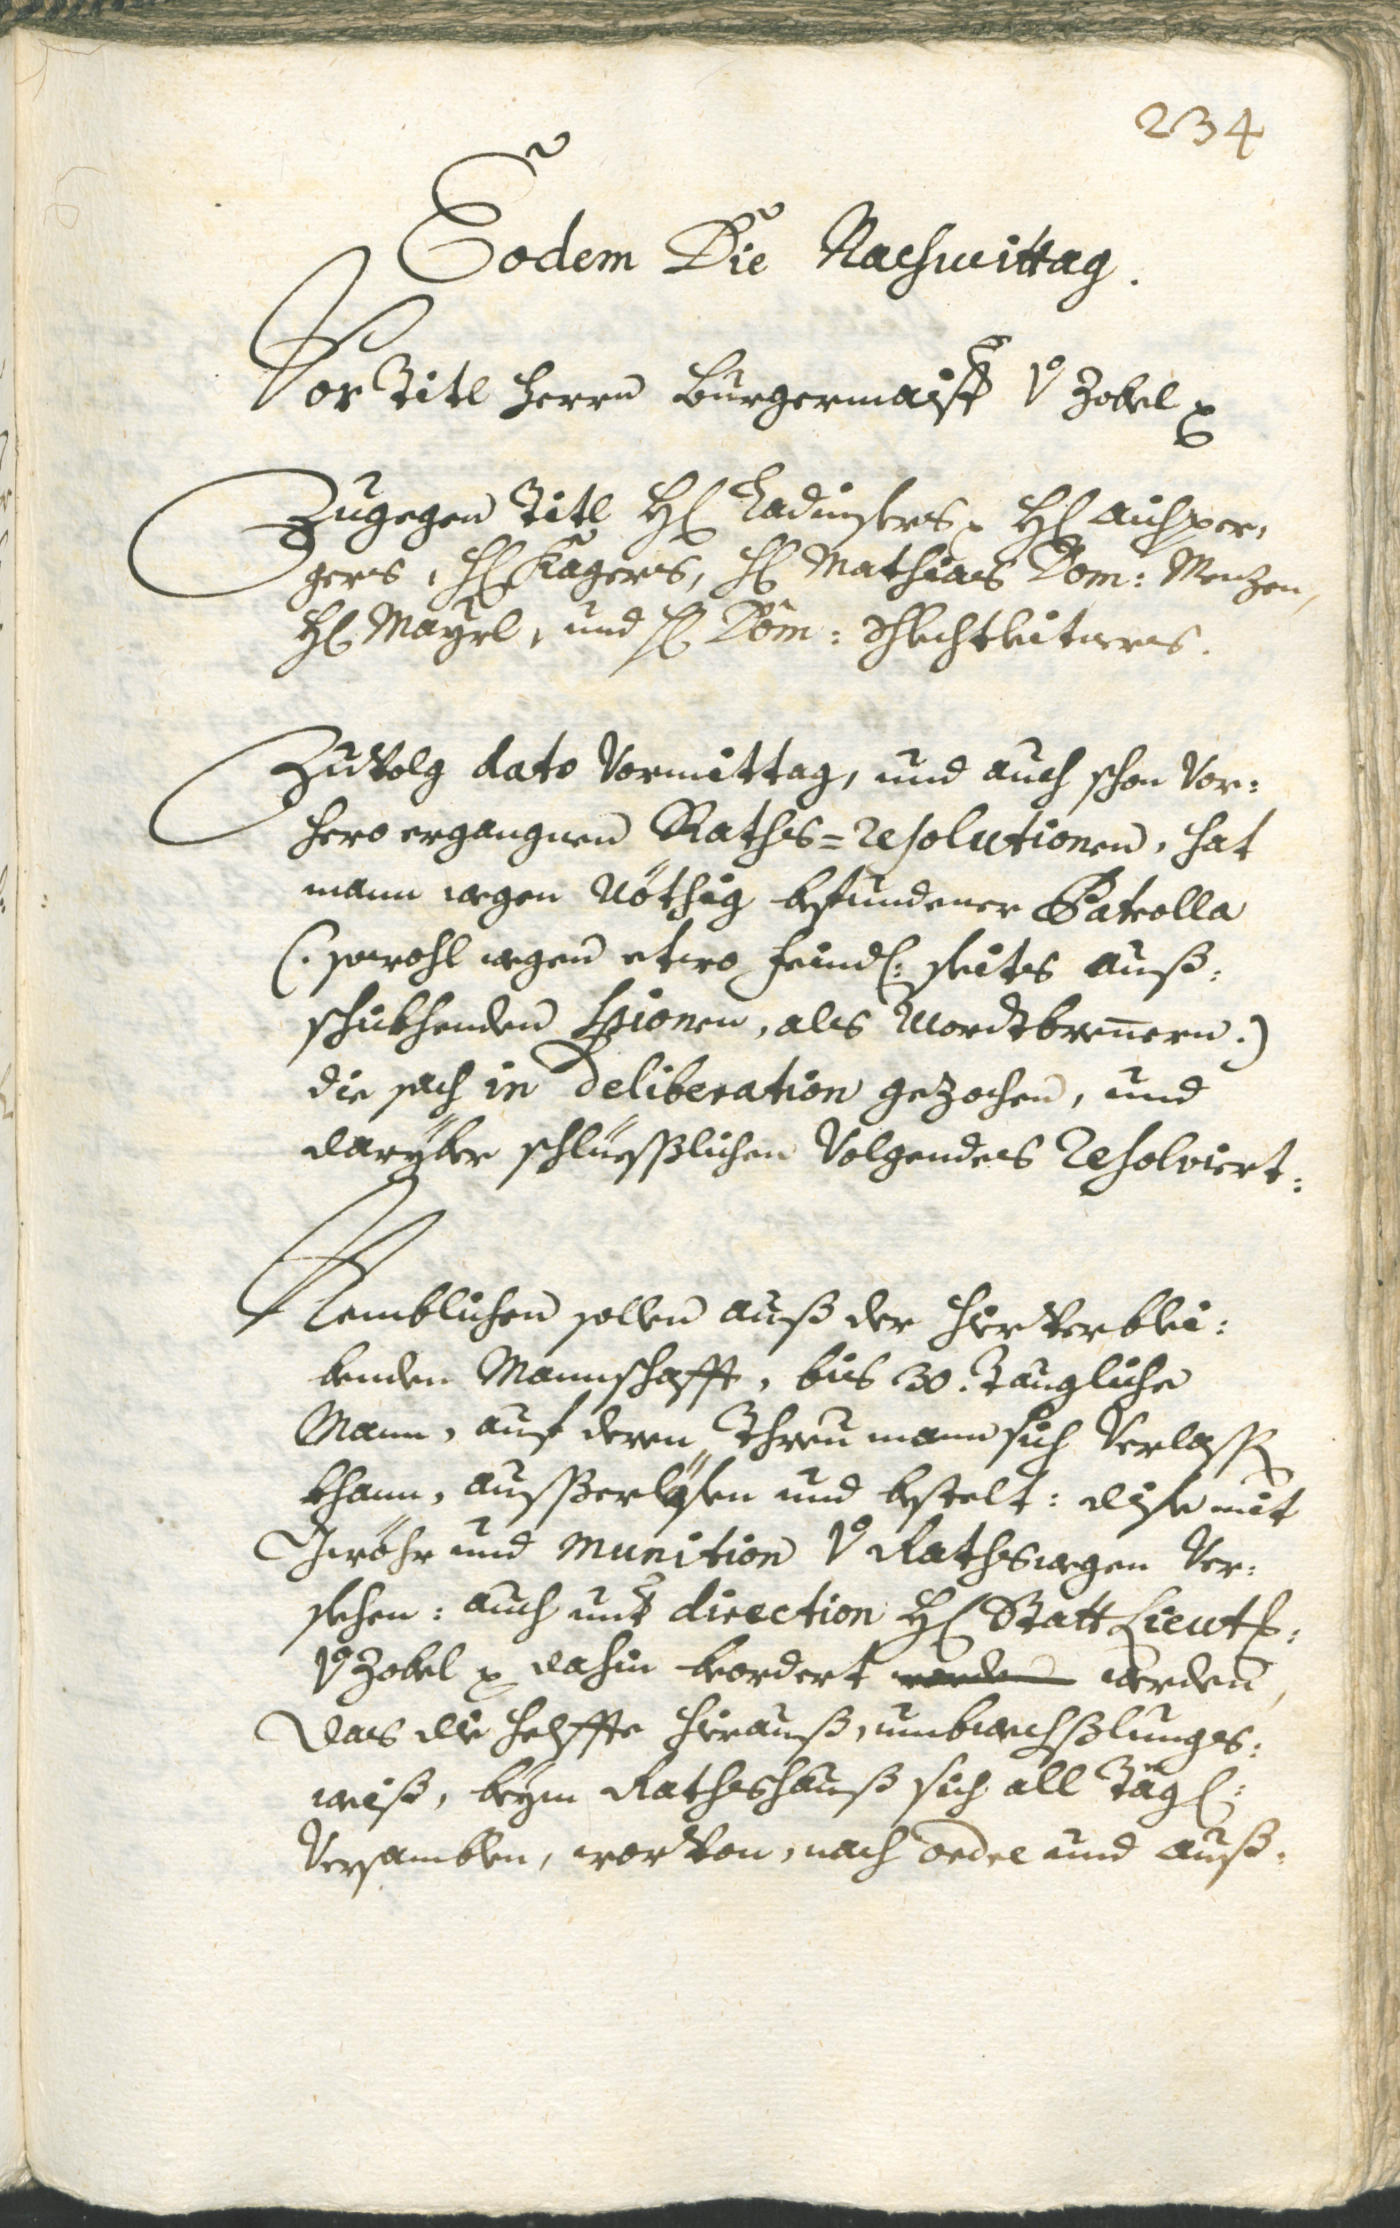 234
Eodem Die Nachmittag.
Vor Titl Herrn Burgermaistr v Zobel
Zugegen Titl H: H:
gers, H: Kagers, H: Mathias Dom: Menzen,
H: Mayrl, und H: Dom:
Zuvolg dato Vormittag, und auch schon Vor:
hero ergangnen Raths=resolutionen, hat
mann wegen nöthig befundener Patrolla
(: sowohl wegen etwo feindl: seits auß:
schikhenden Spionen, als Mordtbrennern :)
die sach in Deliberation gezochen, und
daryber schlüesßlichen Volgendes Resolviert:
Nemblichen sollen auß der hierverblei:
benden Mannschafft, bis 30. Taugliche
Mann, auf deren Threu mann sich Verlassen
khann, ausßerlesen und bestelt: dise mit
Gwöhr und Munition v Rathswegen Ver:
sehen: auch untr direction H: Statt Lieut:
v Zobel dahin beordert werden,
Das die helffte hierauß, umbwechßlungs:
weiß, beym Rathshauß sich all Tägl:
Versamblen, worvon, nach ordre und auß: